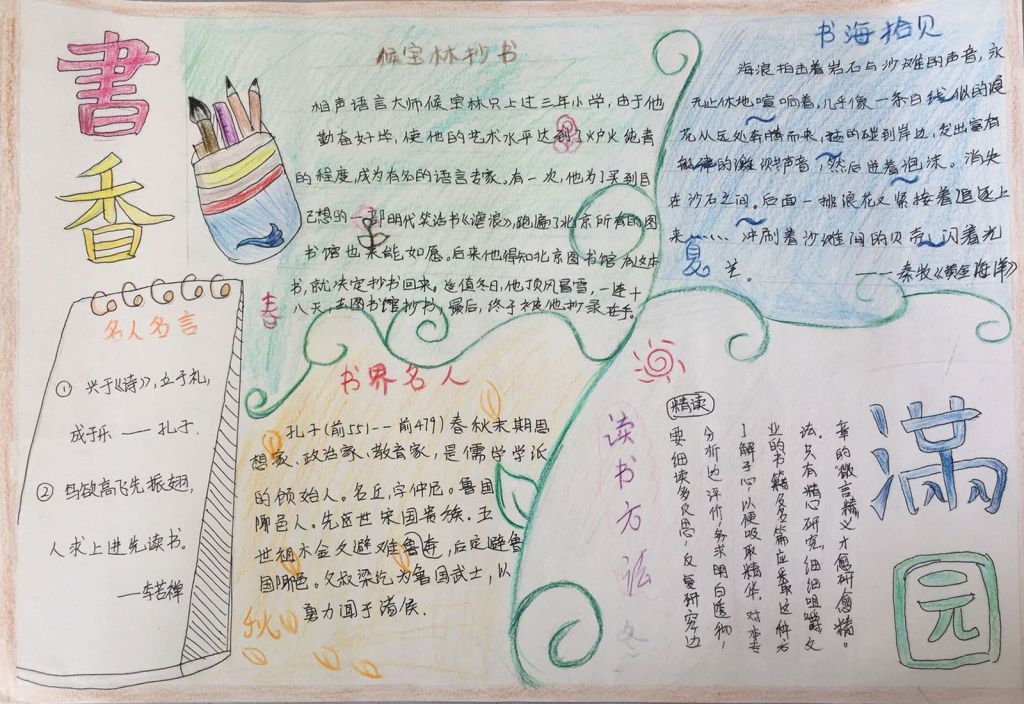 書
香
满
园
候宝林抄书
相声语言大师候宝林只上过三年小学,由于他
勤奋好学,使他的艺术水平达到了炉火纯青
的程度,成为有名的语言专家。有一次,他为了买到自
己想的一部明代笑话书《谑浪》,跑遍了北京所有的图
书馆也未能如愿。后来他得知北京图书馆有这本
书,就决定抄书回来。适值冬日,他顶风冒雪,一连十
八天,去图书馆抄书,最后,终于被他抄录
春
书海拾贝
海浪拍击着岩石与沙滩的声音,永
无止休地喧响着,几乎像一条白线似的浪
花从远处奔腾而来,猛的碰到岸边,发出富有
的声音,然后迸着泡沫。消失
在沙石之间。后面一排浪花又紧接着追逐上
来……冲刷着沙滩间的贝壳,闪着光
芒。
——秦牧《黄金海洋》
夏
名人名言
① 兴于《诗》,立于礼,
成于乐——孔子.
② 鸟欲高飞先振翅,
人求上进先读书。
——李苦禅
书界名人
孔子(前551--前479)春秋末期思
想家、政治家、教育家,是儒学学派
的倾始人。名丘,字仲尼。鲁国
陬邑人。先世宋国贵族.五
世祖木金父避难鲁奔,后定避鲁
国陬邑。父叔梁纥为鲁国武士,以
勇力闻于诸侯.
秋
读书方法
冬
精读
章的"微言精义"才愈研愈精。
法.只有精心研究,细细咀嚼,文
业的书籍及名篇应采取这种方
了解于心,以便吸取精华.对本专
分析边评价,务求明白透彻,
要细读多反思,反复研究边